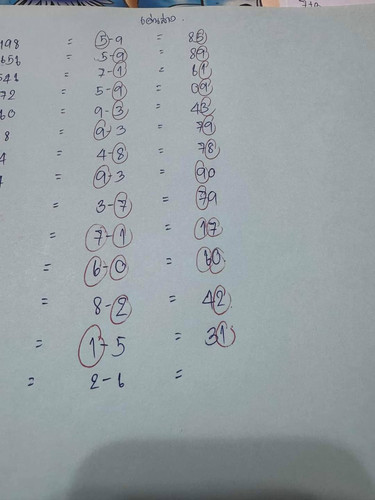 198 = 5-9 = 85
656 = 5-9 = 89
541 = 7-1 = 61
72 = 5-9 = 09
60 = 9-3 = 43
8 = 9-3 = 79
4 = 4-8 = 78
= 9-3 = 90
= 3-7 = 79
= 7-1 = 17
= 6-0 = 60
= 8-2 = 42
= 1-5 = 31
= 2-6 =